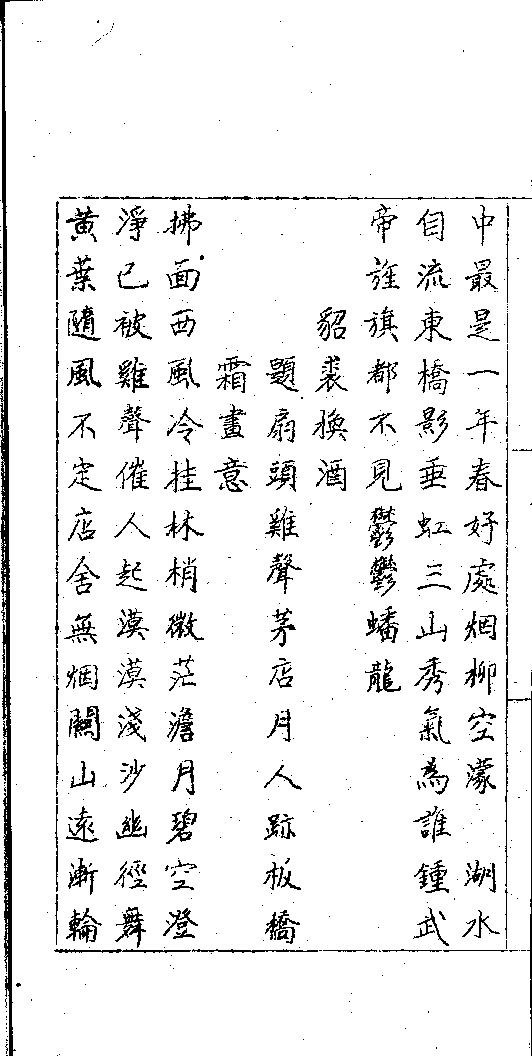 中最是一年春好處烟柳空濛　湖水
自流東橋影垂虹三山秀氣為誰鍾武
帝旌旗都不見鬱鬱蟠龍
貂裘換酒
題扇頭雞聲茅店月人跡板橋
霜畫意
拂面西風冷挂林梢微茫澹月碧空澄
淨已被雞聲催人起漠漠淺沙幽徑舞
黃葉隨風不定店舍無烟關山遠漸輪